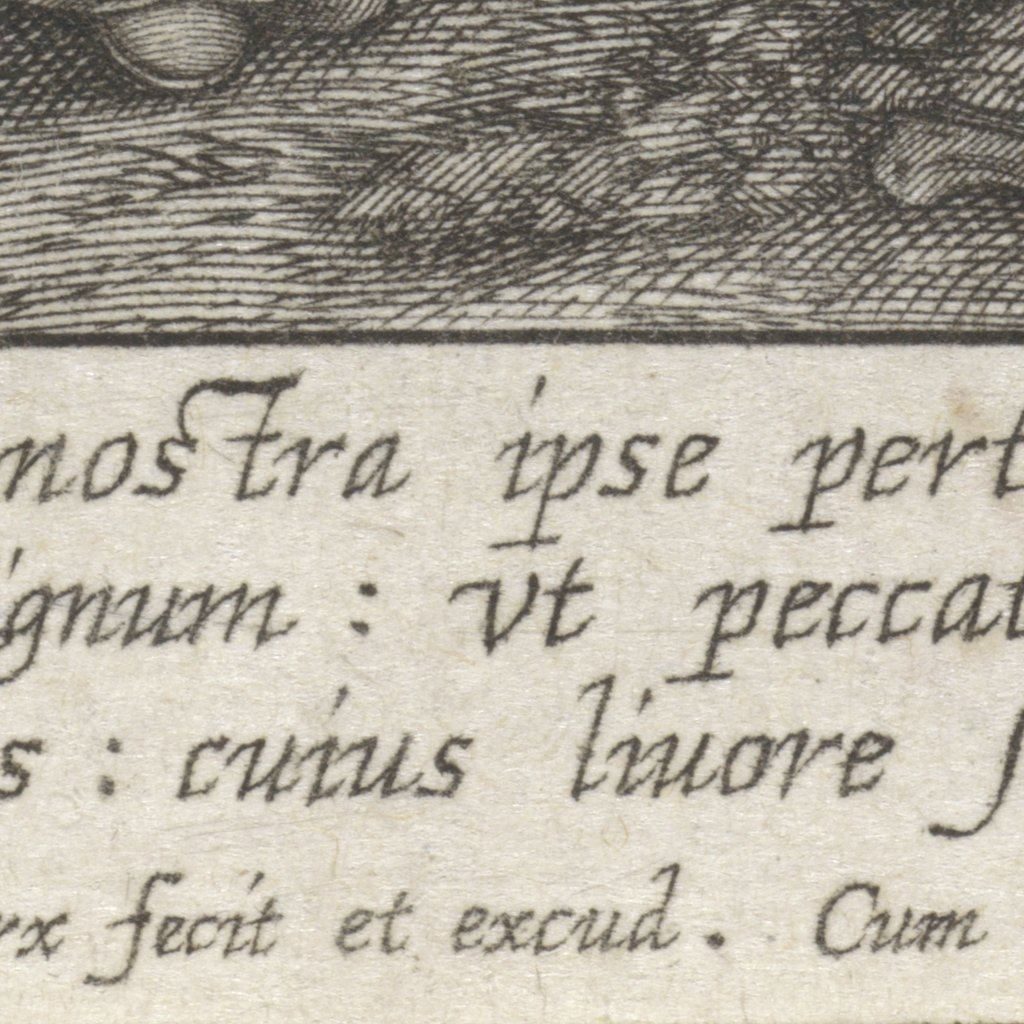 nostra ipse pert
ignum : vt peccat
s : cuius liuore ſ
rx fecit et excud. Cum